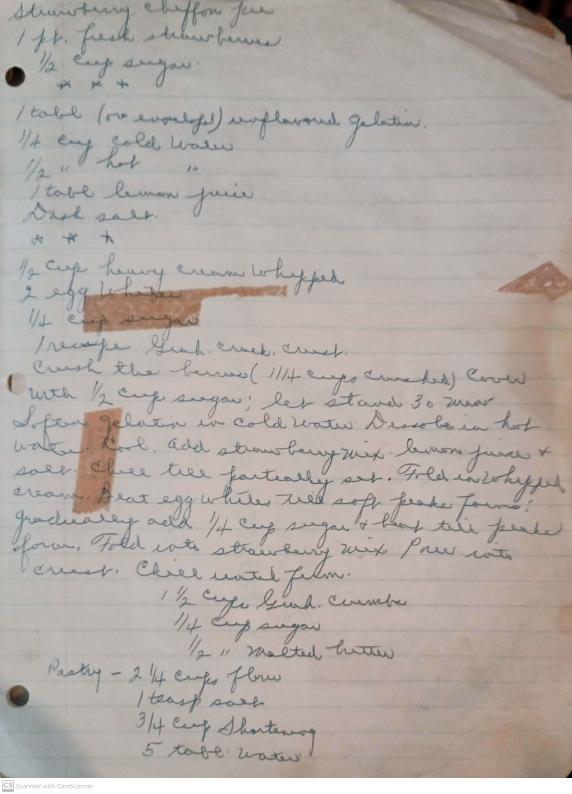 Strawberry Chiffon Pie
1 pt. fresh strawberries
1/2 cup sugar.
* * *
1 tabl (or envelope) unflavoured gelatin.
1/4 cup cold water
1/2 " hot "
1 tabl lemon juice
Dash salt.
* * *
1/2 cup heavy cream whipped
2 egg whites
1/4 cup sugar
1 recipe Grah. crack. crust.
Crush the berries (1 1/4 cups crushed) Cover
with 1/2 cup sugar; let stand 30 min
Soften gelatin in cold water. Dissolve in hot
water. Cool. add strawberry mix lemon juice +
salt. Chill till partially set. Fold in whipped
cream. Beat egg whites till soft peaks forms;
gradually add 1/4 cup sugar + beat till peaks
form. Fold into strawberry mix Pour into
crust. Chill until firm.
1 1/2 cups Grah. crumbs
1/4 cup sugar
1/2 " malted butter
Pastry - 2 1/4 cups flour
1 teasp salt
3/4 cup Shortening
5 tabl. water
CS Scanned with CamScanner